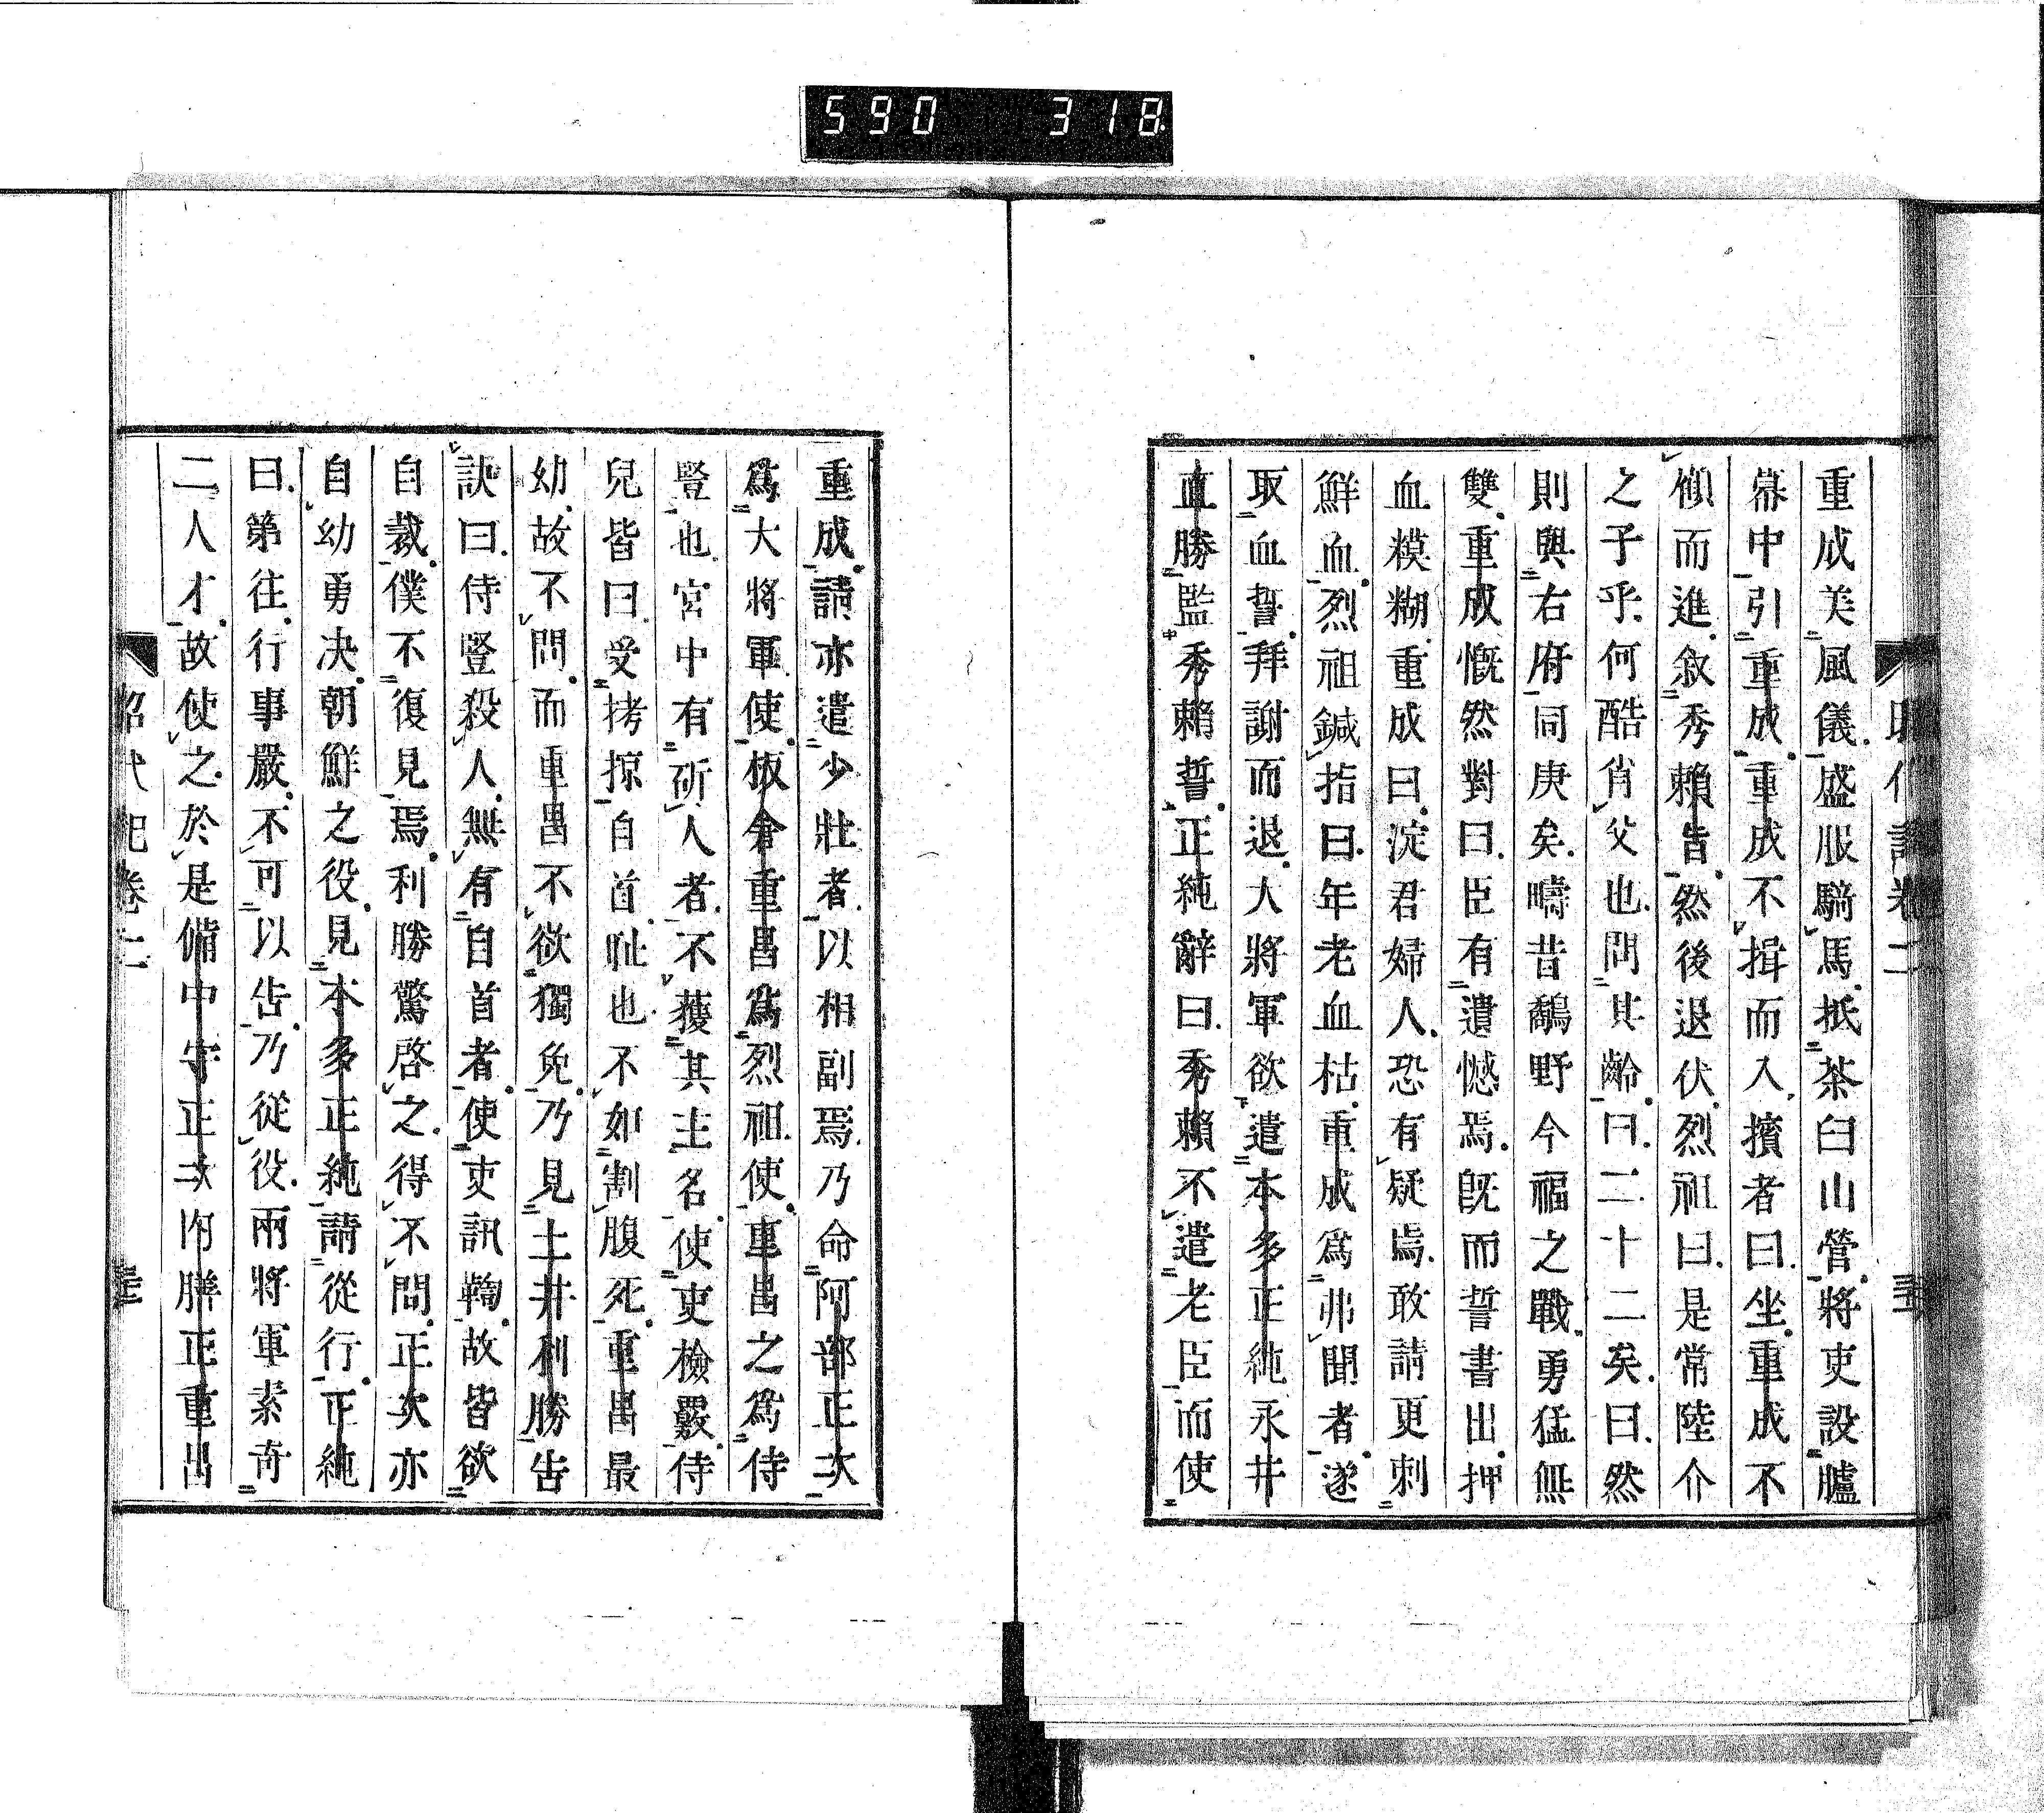 590 318
重成美風儀盛服騎馬抵茶臼山營將吏設臚
幕中引重成重成不揖而入擯者曰坐重成不
傾而進敘秀賴旨然後退伏烈祖曰是常陸介
之子乎何酷肖父也問其齡曰二十二矣曰然
則與右府同庚矣疇昔鷸野今福之戰勇猛無
雙重成慨然對曰臣有遺憾焉既而誓書出押
血糢糊重成曰淀君婦人恐有疑焉敢請更刺
鮮血烈祖鍼指曰年老血枯重成爲弗聞者遂
取血誓拜謝而退大將軍欲遣本多正純永井
直勝監秀賴誓正純辭曰秀賴不遣老臣而使
重成請亦遣少壯者以相副焉乃命阿部正次
爲大將軍使板倉重昌爲烈祖使重昌之爲侍
豎也宮中有斫人者不獲其主名使吏檢覈侍
兒皆曰受拷掠自首耻也不如割腹死重昌最
幼故不問而重昌不欲獨免乃見土井利勝告
訣曰侍豎殺人無有自首者使吏訊鞫故皆欲
自裁僕不復見焉利勝驚啓之得不問正次亦
自幼勇決朝鮮之役見本多正純請從行正純
曰第往行事嚴不可以告乃從役兩將軍素奇
二人才故使之於是備中守正次內膳正重昌
昭代記卷二